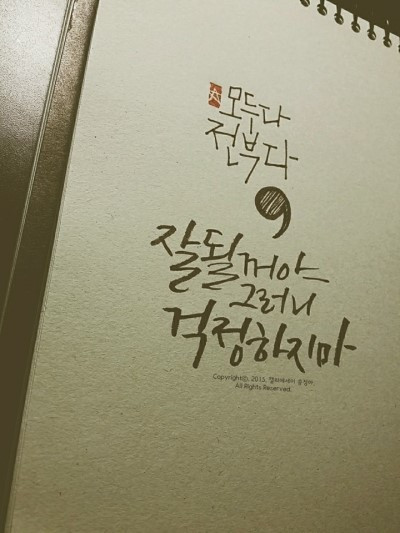 모두다
전부다
,
잘될꺼야
그러니
걱정하지마
Copyrightⓒ, 2015,
All Rights Reserved.